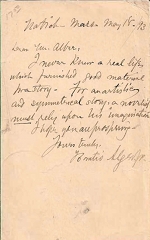 Natick Mass May 18-93
Dear Mr. Alber,
I never knew a real life,
which furnished good material
for a story - For an artistic
and symmetrical story, a novelist
must rely upon his imagination
I hope you are prospering -
Yours truly,
Horatio Alger Jr.